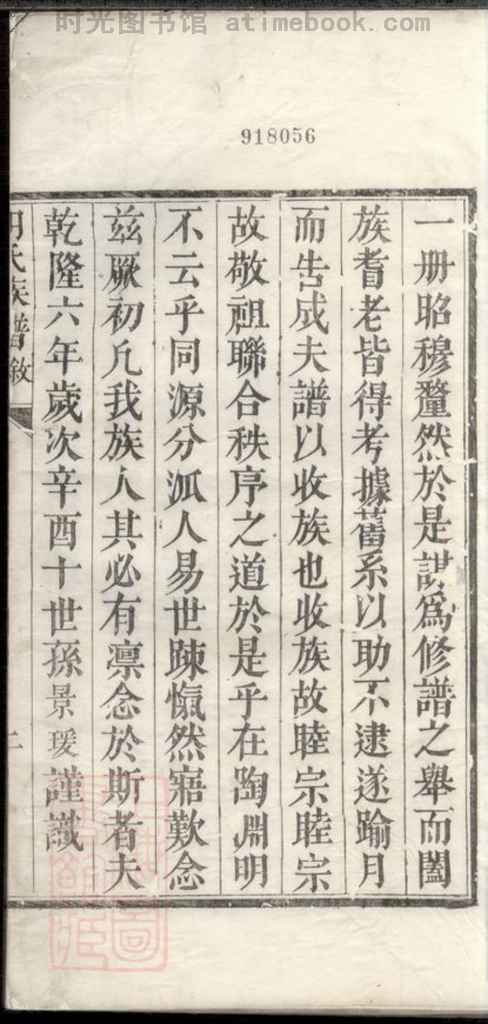 时光图书馆 atimebook.com
918056
一册昭穆釐然於是謀爲修譜之舉而闔
族耆老皆得考據舊系以助不逮遂踰月
而告成夫譜以收族也收族故睦宗睦宗
故敬祖聯合秩序之道於是乎在陶淵明
不云乎同源分派人易世踈慨然寤歎念
茲厥初凡我族人其必有凛念於斯者夫
乾隆六年歲次辛酉十世孫景瑗謹識
氏族譜敘
二